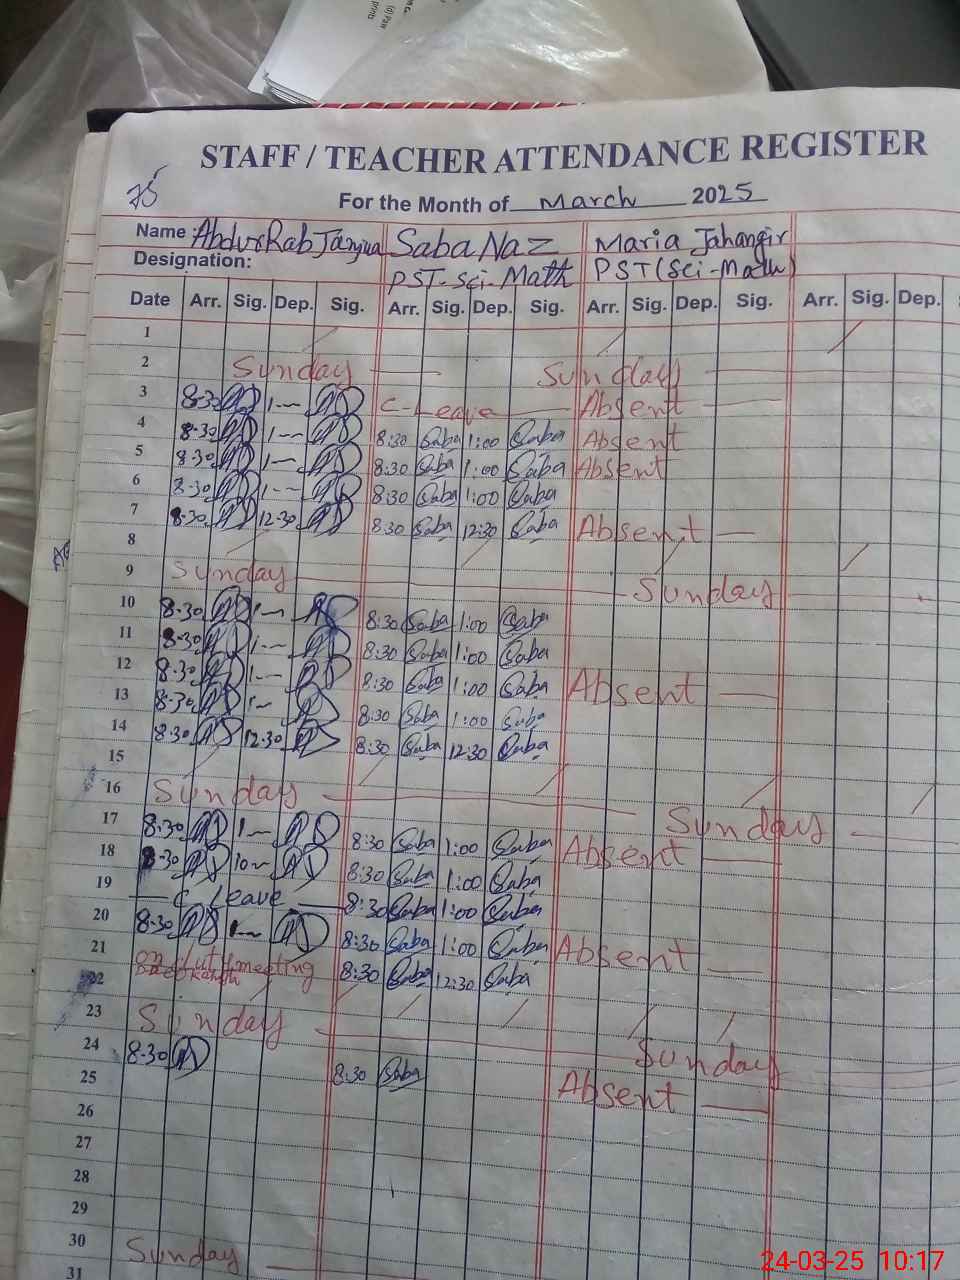 (d) Paw
prints
STAFF / TEACHER ATTENDANCE REGISTER
75
For the Month of March 2025
Name : Abdur Rab Janjua Saba Naz Maria Jahangir
Designation: PST-Sci-Math PST (Sci-Math)
Date Arr. Sig. Dep. Sig. Arr. Sig. Dep. Sig. Arr. Sig. Dep. Sig. Arr. Sig. Dep.
1
2 Sunday Sunday
3 8-30 1 C-Leave Absent
4 8-30 1 8:30 Saba 1:00 Saba Absent
5 8-30 1 8:30 Saba 1:00 Saba Absent
6 8-30 1 8:30 Saba 1:00 Saba
7 8-30 12-30 8:30 Saba 12:30 Saba Absent
8
9 Sunday Sunday
10 8-30 1 8:30 Saba 1:00 Saba
11 8-30 1 8:30 Saba 1:00 Saba
12 8-30 1 8:30 Saba 1:00 Saba Absent
13 8-30 1 8:30 Saba 1:00 Saba
14 8-30 12-30 8:30 Saba 12:30 Saba
15
16 Sunday Sunday
17 8-30 1 8:30 Saba 1:00 Saba Absent
18 8-30 8:30 Saba 1:00 Saba
19 C Leave 8:30 Saba 1:00 Saba
20 8-30 1 8:30 Saba 1:00 Saba Absent
21 meeting 8:30 Saba 12:30 Saba
22
23 Sunday Sunday
24 8-30 8:30 Saba Absent
25
26
27
28
29
30 Sunday
31
24-03-25 10:17